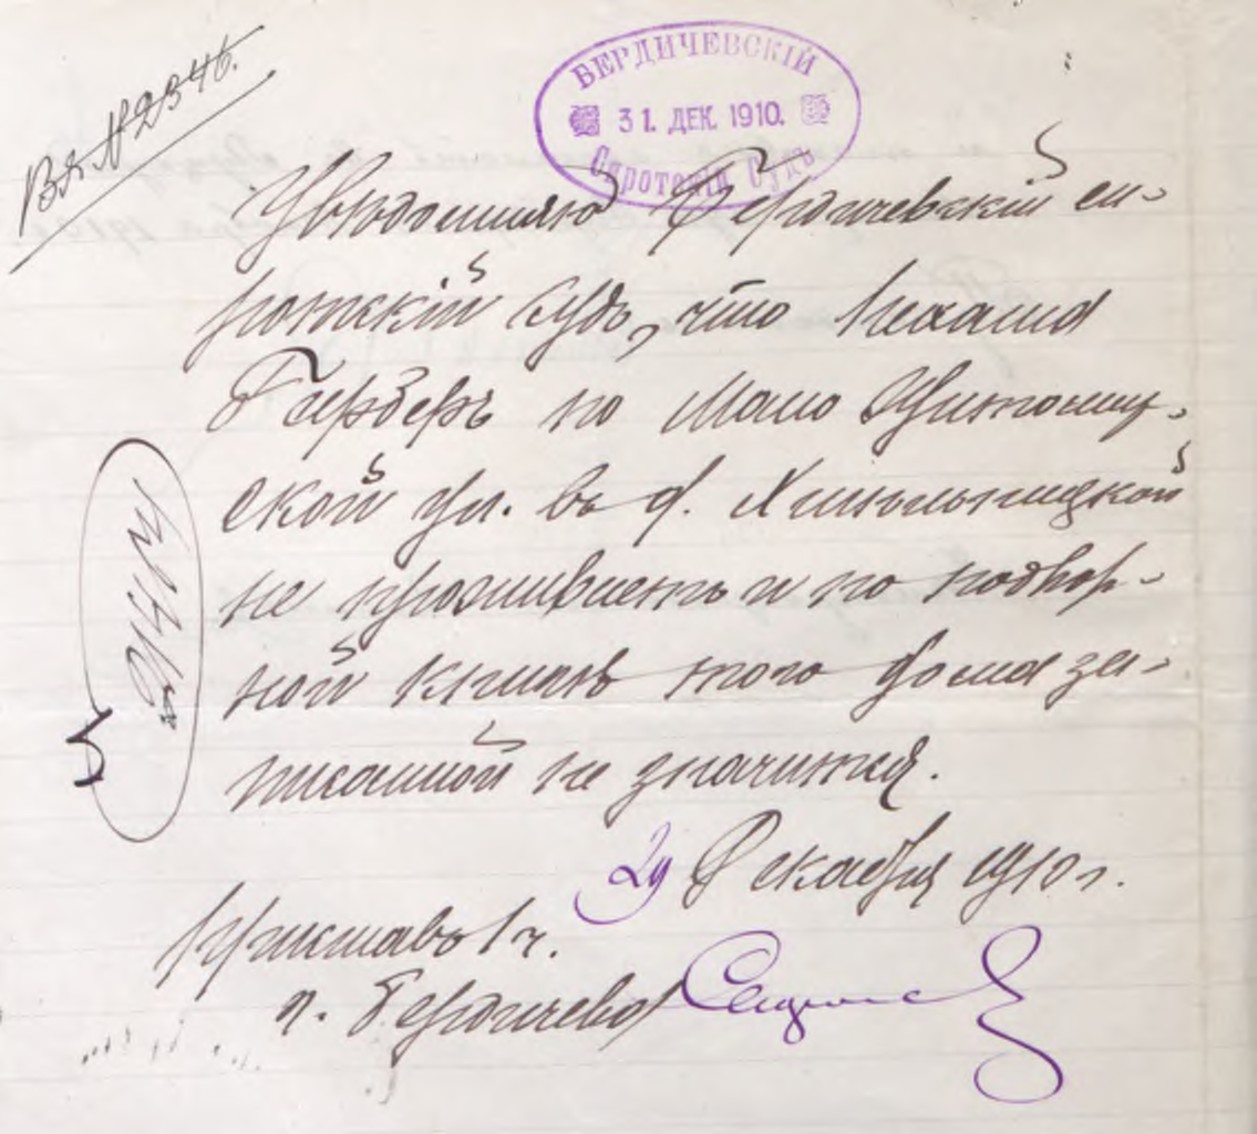 Вх. № 2346.
БЕРДИЧЕВСКІЙ
31. ДЕК. 1910.
Сиротскій Судъ
Увѣдомляю Бердичевскій си-
ротскій Судъ, что
Герберъ по Мало
ской ул. въ д.
не проживаетъ и по подвор-
ной книгѣ того дома за-
писанной не значится.
29 Декабря 1910 г.
Приставъ 1 ч.
г. Бердичева